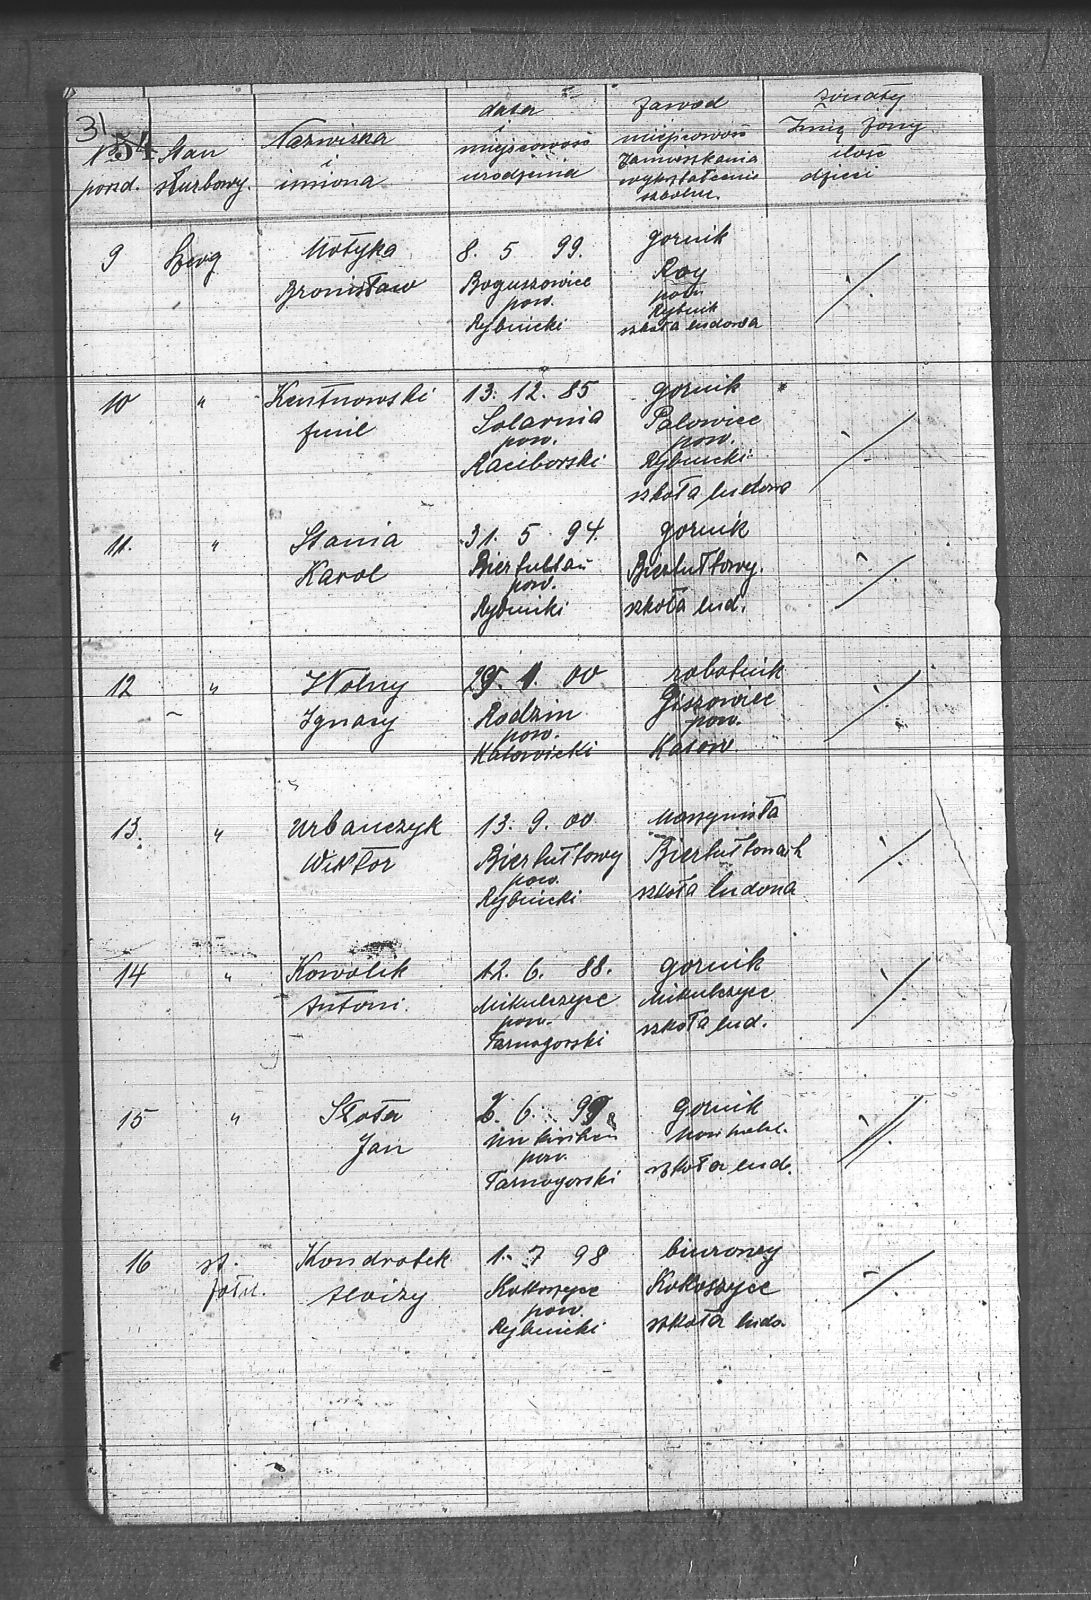 31
54
№ porzd.
Stan służbowy.
Nazwiska
i
imiona
data
i
miejscowość
urodzenia
Zawod
miejscowość
Zamieszkania
wykształcenie
szkolne.
żonaty
Imię żony
ilość
dzieci
9
Szerg
Motyka
Bronisław
8. 5 99.
Boguszowice
pow.
Rybnicki
gornik
Roy
pow.
Rybnik
szkoła ludowa
10
"
Kentnowski
Emil
13. 12. 85
Solarnia
pow.
Raciborski
gornik
Palowice
pow.
Rybnicki
szkoła ludowa
11.
"
Stania
Karol
31. 5 94.
Biertułtau
pow.
Rybnicki
gornik
Biertułtowy.
szkoła lud.
12
"
Wolny
Ignacy
1. 00
Rodzin
pow.
Katowicki
robotnik
Giszowiec
pow.
Katow.
13.
"
Urbanczyk
Wiktor
13. 9. 00
Biertułtowy
pow.
Rybnicki
Maszynista
Biertułtowach
szkoła ludowa
14
"
Kowolik
Antoni.
12. 6. 88.
Mikulczyce
pow.
Tarnogorski
gornik
Mikulczyce
szkoła lud.
15
"
Skota
Jan
6.
pow.
Tarnogorski
gornik
szkoła lud.
16
st.
żołn.
Kondrotek
Aloizy
1. 7 98
Kokoszyce
pow.
Rybnicki
biurowy
Kokoszyce
szkoła ludo.